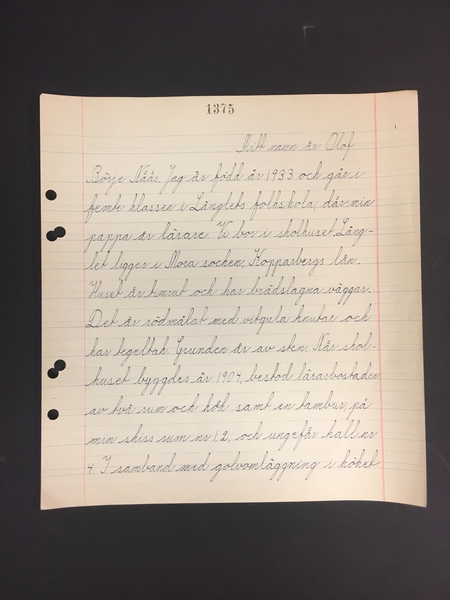 1375
Mitt namn är Olof
Börje Nääs. Jag är född år 1933 och går i
femte klassen i Långlets folkskola, där min
pappa är lärare. Vi bor i skolhuset. Lång-
let ligger i Mora socken, Kopparbergs län.
Huset är timrat och har brädslagna väggar.
Det är rödmålat med vitgula knutar och
har tegeltak. Grunden är av sten. När skol-
huset byggdes år 1904, bestod lärarbostaden
av två rum och kök samt en tambur, på
min skiss rum nr 1, 2, och ungefär hall nr
4. I samband med golvomläggning i köket